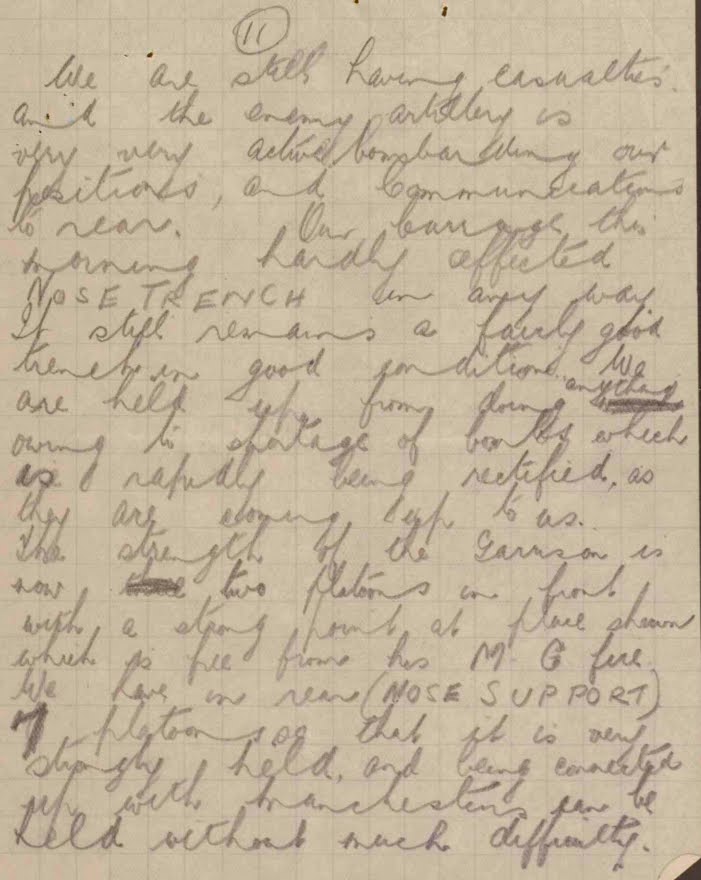 11
We are still having casualties
and the enemy artillery is
very very active bombarding our
positions, and communications
to rear. Our barrage this
morning hardly affected
NOSE TRENCH in any way
It still remains a fairly good
trench in good condition. We
are held up from doing anything
owing to shortage of bombs which
is rapidly being rectified, as
they are coming up to us.
The strength of the Garrison is
now two platoons in front
with a strong point at place shewn
which is free from his M. G fire.
We have in rear (NOSE SUPPORT)
platoons so that it is very
strongly held, and being connected
up with Manchesters can be
held without much difficulty.